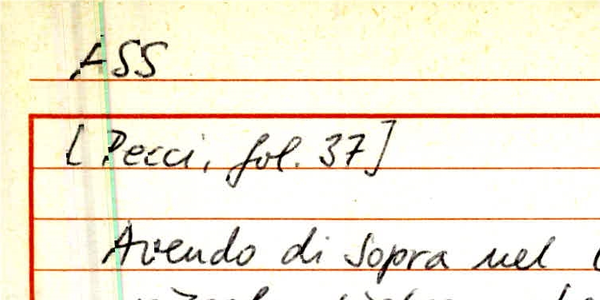 ASS
[Pecci, fol. 37]
Avendo di sopra nel